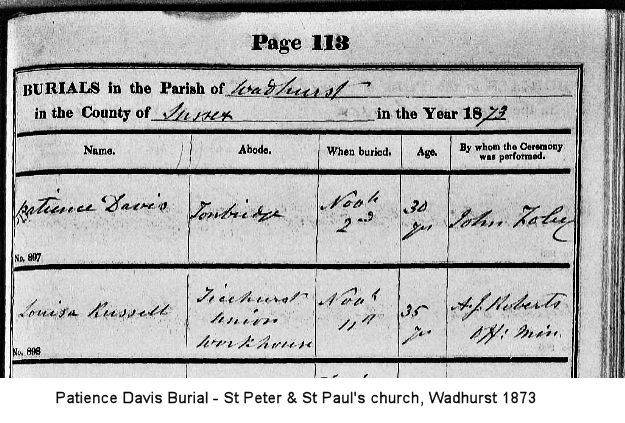 Page 113
BURIALS in the Parish of Wadhurst
in the County of Sussex in the Year 1873
Name. Abode. When buried. Age. By whom the Ceremony was performed.
Patience Davis Tonbridge Novh 2nd 30 yrs John
No. 897
Louisa Russell Ticehurst Union Workhouse Novh 11th 35 yrs A.J. Roberts Off: Min.
No. 898
Patience Davis Burial - St Peter & St Paul's church, Wadhurst 1873